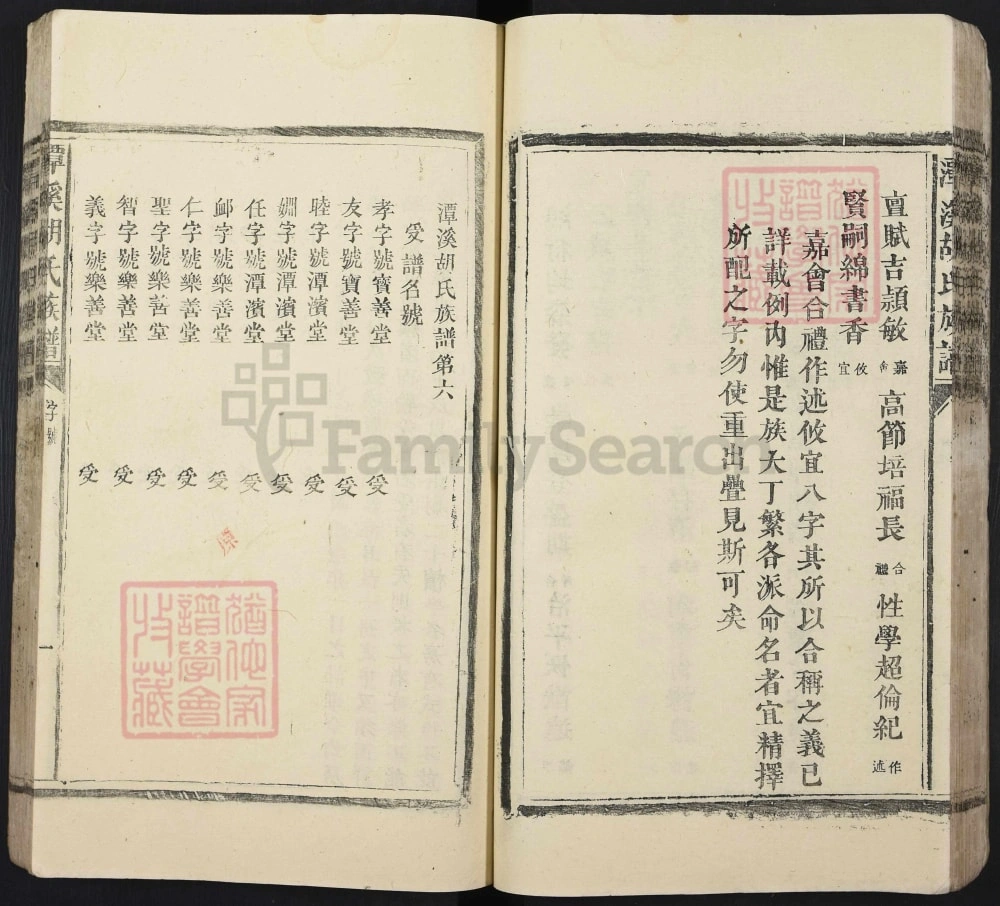 潭溪胡氏族譜
亶賦吉頴敏 嘉會 高節培福長 合禮 性學超倫紀 作述
賢嗣綿書香 攸宜
嘉會合禮作述攸宜八字其所以合稱之義已
詳載例內惟是族大丁繁各派命名者宜精擇
所配之字勿使重出疊見斯可矣
潭溪胡氏族譜第六
受譜名號
孝字號寶善堂 受
友字號寶善堂 受
睦字號潭濱堂 受
婣字號潭濱堂 受
任字號潭濱堂 受
卹字號樂善堂 受
仁字號樂善堂 受
聖字號樂善堂 受
智字號樂善堂 受
義字號樂善堂 受
潭溪胡氏族譜 字號 一
譜學會
FamilySearch